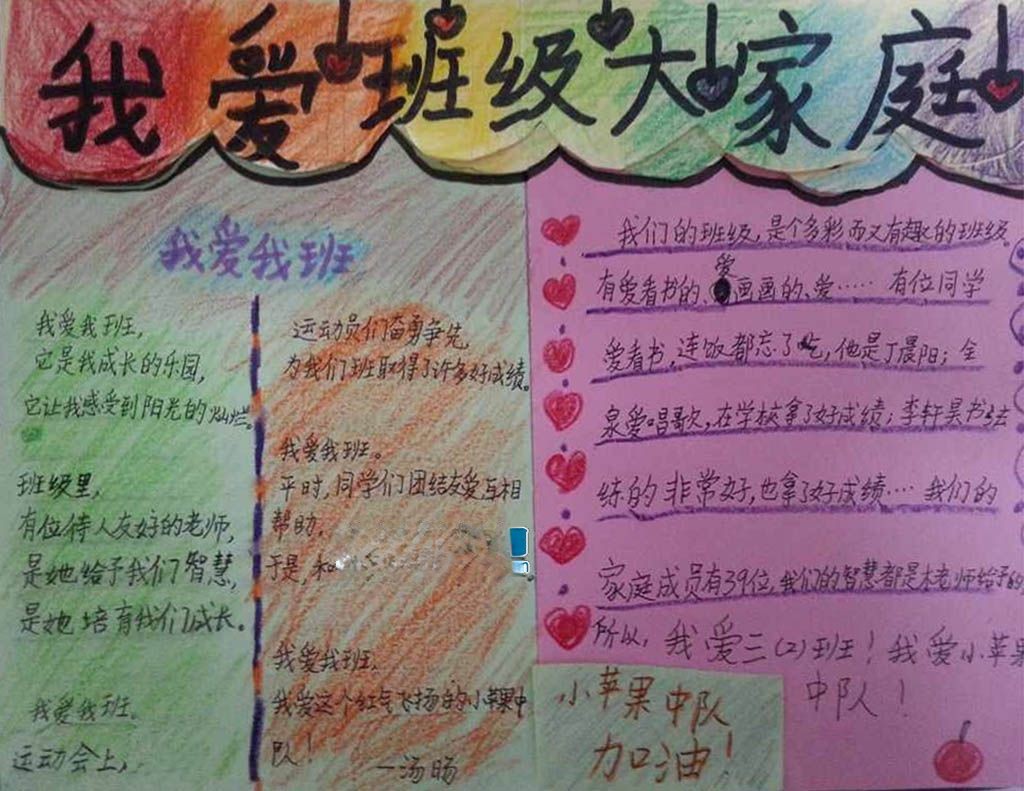 我爱班级大家庭
我爱我班
我爱我班,
它是我成长的乐园,
它让我感受到阳光的灿烂。
班级里,
有位待人友好的老师,
是她给予我们智慧,
是她培育我们成长。
我爱我班。
运动会上,
运动员们奋勇争先,
为我们班取得了许多好成绩。
我爱我班。
平时,同学们团结友爱互相
帮助,
于是,和
我爱我班,
我爱这个红气飞扬的小苹果中
队!
—汤旸
我们的班级,是个多彩而又有趣的班级。
有爱看书的、爱画画的、爱…… 有位同学
爱看书,连饭都忘了吃,他是丁晨阳;全
泉爱唱歌,在学校拿了好成绩;李轩昊书法
练的非常好,也拿了好成绩… 我们的
家庭成员有39位,我们的智慧都是林老师给予的
所以,我爱三(2)班!我爱小苹果
中队!
小苹果中队
加油!